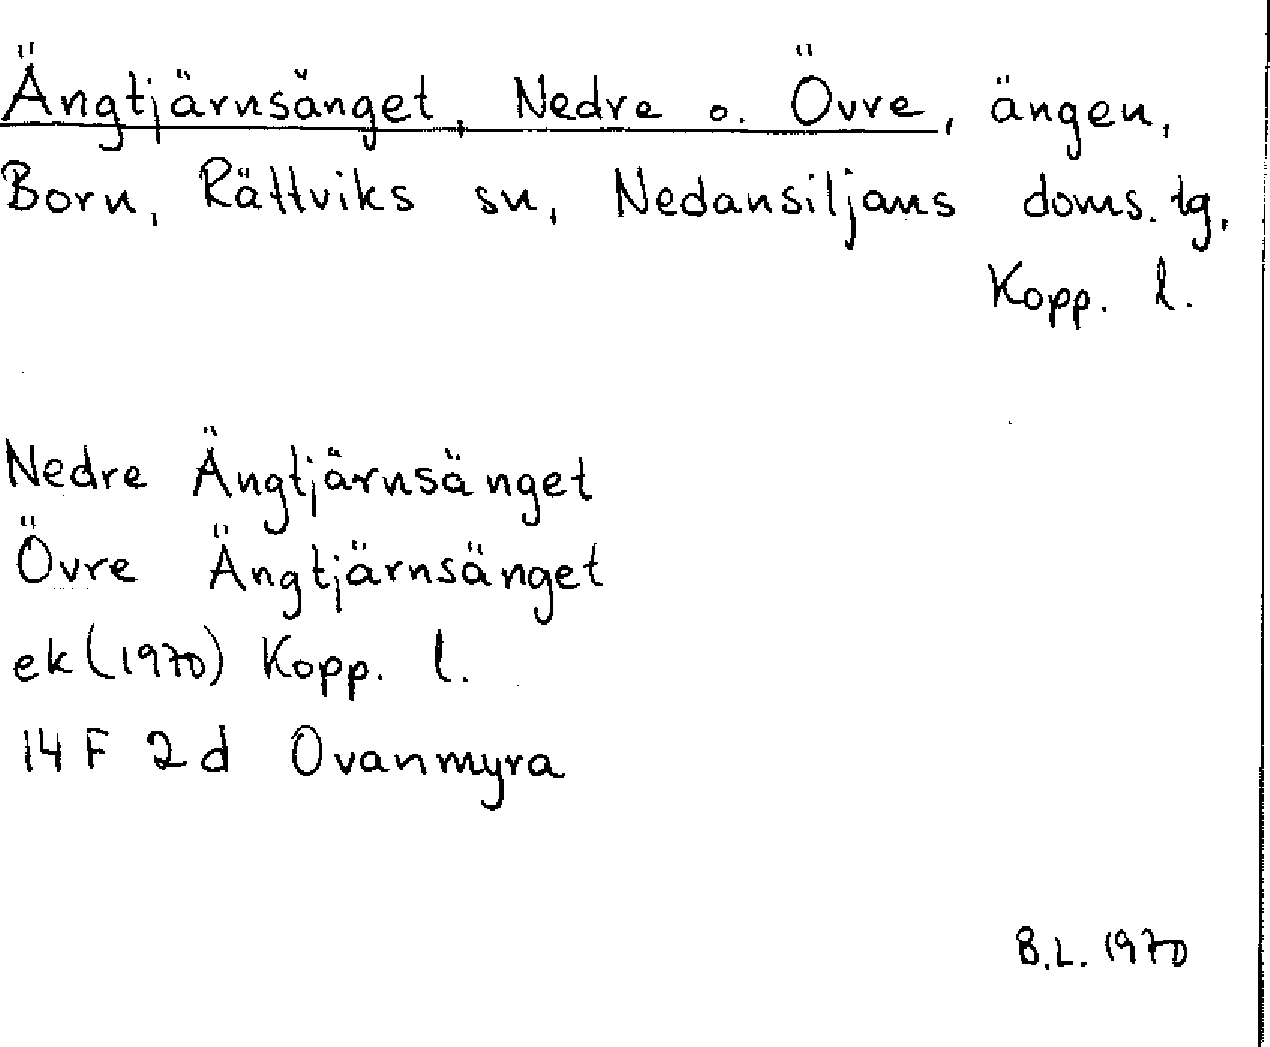 Ängtjärnsänget, Nedre o. Övre, ängen,
Born, Rättviks sn, Nedansiljans doms. tg,
Kopp. l.
Nedre Ängtjärnsänget
Övre Ängtjärnsänget
ek (1970) Kopp. l.
14 F 2 d Ovanmyra
B.L. 1970